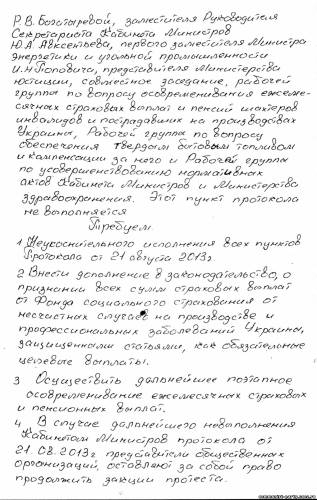 Р.В. Богатыревой, заместителя Руководителя
Секретариата Кабинета Министров
Ю.А. Авксентьева, первого заместителя Министра
энергетики и угольной промышленности
И.Н. Поповича, представителя Министерства
юстиции, совместное заседание, рабочей
группы по вопросу осовременивания ежеме-
сячных страховых выплат и пенсий шахтеров
инвалидов и пострадавших на производствах
Украины, Рабочей группы по вопросу
обеспечения твердым бытовым топливом
и компенсации за него и Рабочей группы
по усовершенствованию нормативных
актов Кабинета Министров и Министерства
здравоохранения. Этот пункт протокола
не выполняется
Требуем
1 Неукоснительного исполнения всех пунктов
Протокола от 21 августа 2013г.
2 Внести дополнение в законодательство, о
признании всех сумм страховых выплат
от Фонда социального страхования от
несчастных случаев на производстве и
профессиональных заболеваний Украины,
защищенными статьями, как обязательные
целевые выплаты.
3 Осуществить дальнейшее поэтапное
осовременивание ежемесячных страховых
и пенсионных выплат.
4 В случае дальнейшего невыполнения
Кабинетом Министров протокола от
21.08.2013г. представители общественных
организаций, оставляют за собой право
продолжить акции протеста.